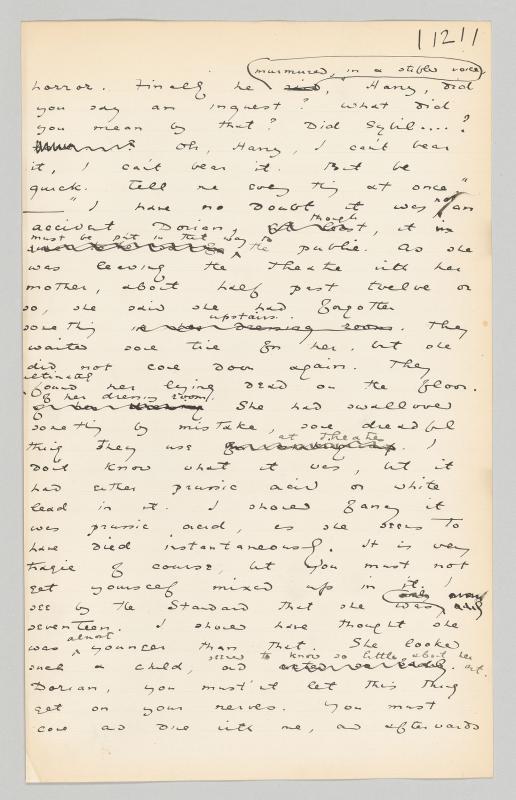 1121
murmured, in a stifled voice,
horror. Finally he said, "Harry, did
you say an inquest? What did
you mean by that? Did Sybil....?
Oh, Harry, I can't bear
it, I can't bear it. But be
quick. Tell me every thing at once"
"I have no doubt it was not an
accident Dorian, though it is
must be put in that way to
the public. As she
was leaving the theatre with her
mother, about half past twelve or
so, she said she had forgotten
something upstairs. They
waited some time for her, but she
did not come down again. They
ultimately
found her lying dead on the floor
of her dressing room.
She had swallowed
something by mistake, some dreadful
thing they use at theatres. I
don't know what it was, but it
had either prussic acid or white
lead in it. I should fancy it
was prussic acid, as she seems to
have died instantaneously. It is very
tragic of course, but you must not
get yourself mixed up in it. I
see by the Standard that she was only
seventeen. I should have thought she
was almost younger than that. She looked
such a child, and seemed to know so little about her art.
Dorian, you mustn't let this thing
get on your nerves. You must
come and dine with me, and afterwards